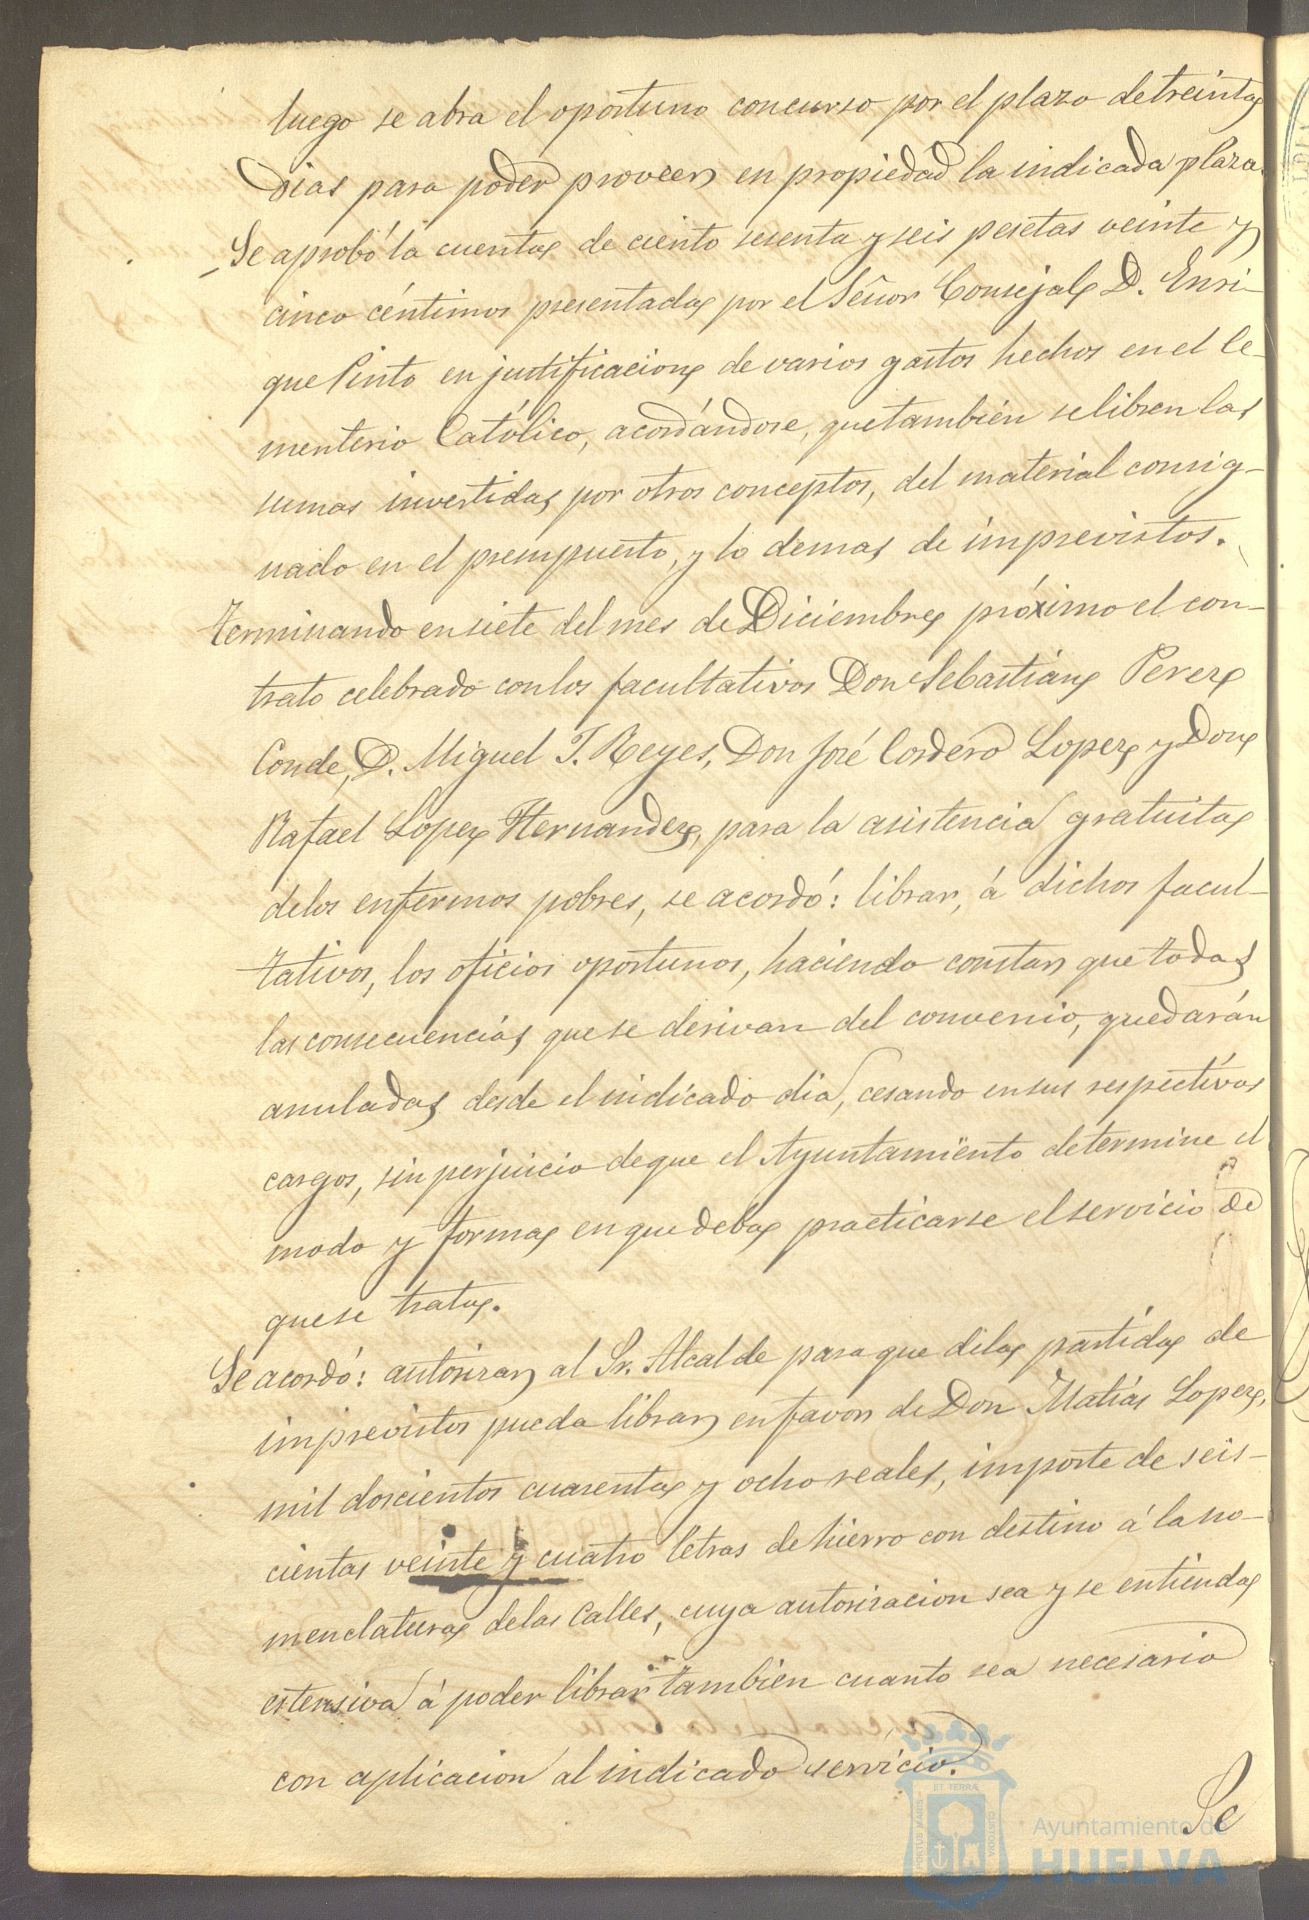 luego se abra el oportuno concurso por el plazo de treinta
dias para poder proveer en propiedad la indicada plaza.
Se aprobó la cuenta de ciento sesenta y seis pesetas veinte y
cinco céntimos presentada por el Señor Consejal D. Enri-
que Pinto en justificacion de varios gastos hechos en el Ce-
menterio Católico, acordándose, que también se libren las
sumas invertidas por otros conceptos, del material consig-
nado en el presupuesto, y lo demas de imprevistos.
Terminando en siete del mes de Diciembre próximo el con-
trato celebrado con los facultativos Don Sebastián Perez
Conde, D. Miguel T. Reyes, Don José Cordero Lopez y Don
Rafael Lopez Hernandez, para la asistencia gratuita
de los enfermos pobres, se acordó: librar, á dichos facul-
tativos, los oficios oportunos, haciendo constar que todas
las consecuencias que se derivan del convenio, quedarán
anuladas desde el indicado dia, cesando en sus respectivos
cargos, sin perjuicio de que el Ayuntamiento determine el
modo y forma en que deba practicarse el servicio de
que se trata.
Se acordó: autorizar al Sr. Alcalde para que de la partida de
imprevistos pueda librar en favor de Don Matías Lopez,
mil doscientos cuarenta y ocho reales, importe de seis-
cientas veinte y cuatro letras de hierro con destino á la no-
menclatura de las Calles, cuya autorizacion sea y se entienda
estensiva á poder librar tambien cuanto sea necesario
con aplicacion al indicado servicio.
Se
PORTUS MARIS
ET TERRÆ
CUSTODIA
Ayuntamiento de
HUELVA